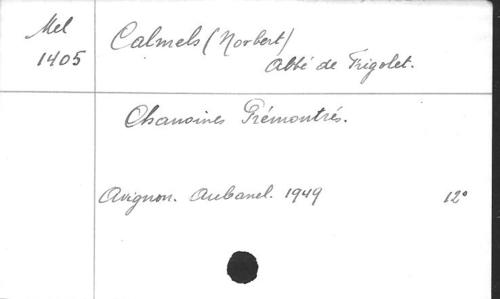 Mel
1405
Calmels (Norbert)
Abbé de Frigolet.
Chanoines Prémontrés.
Avignon. Aubanel. 1949 12°